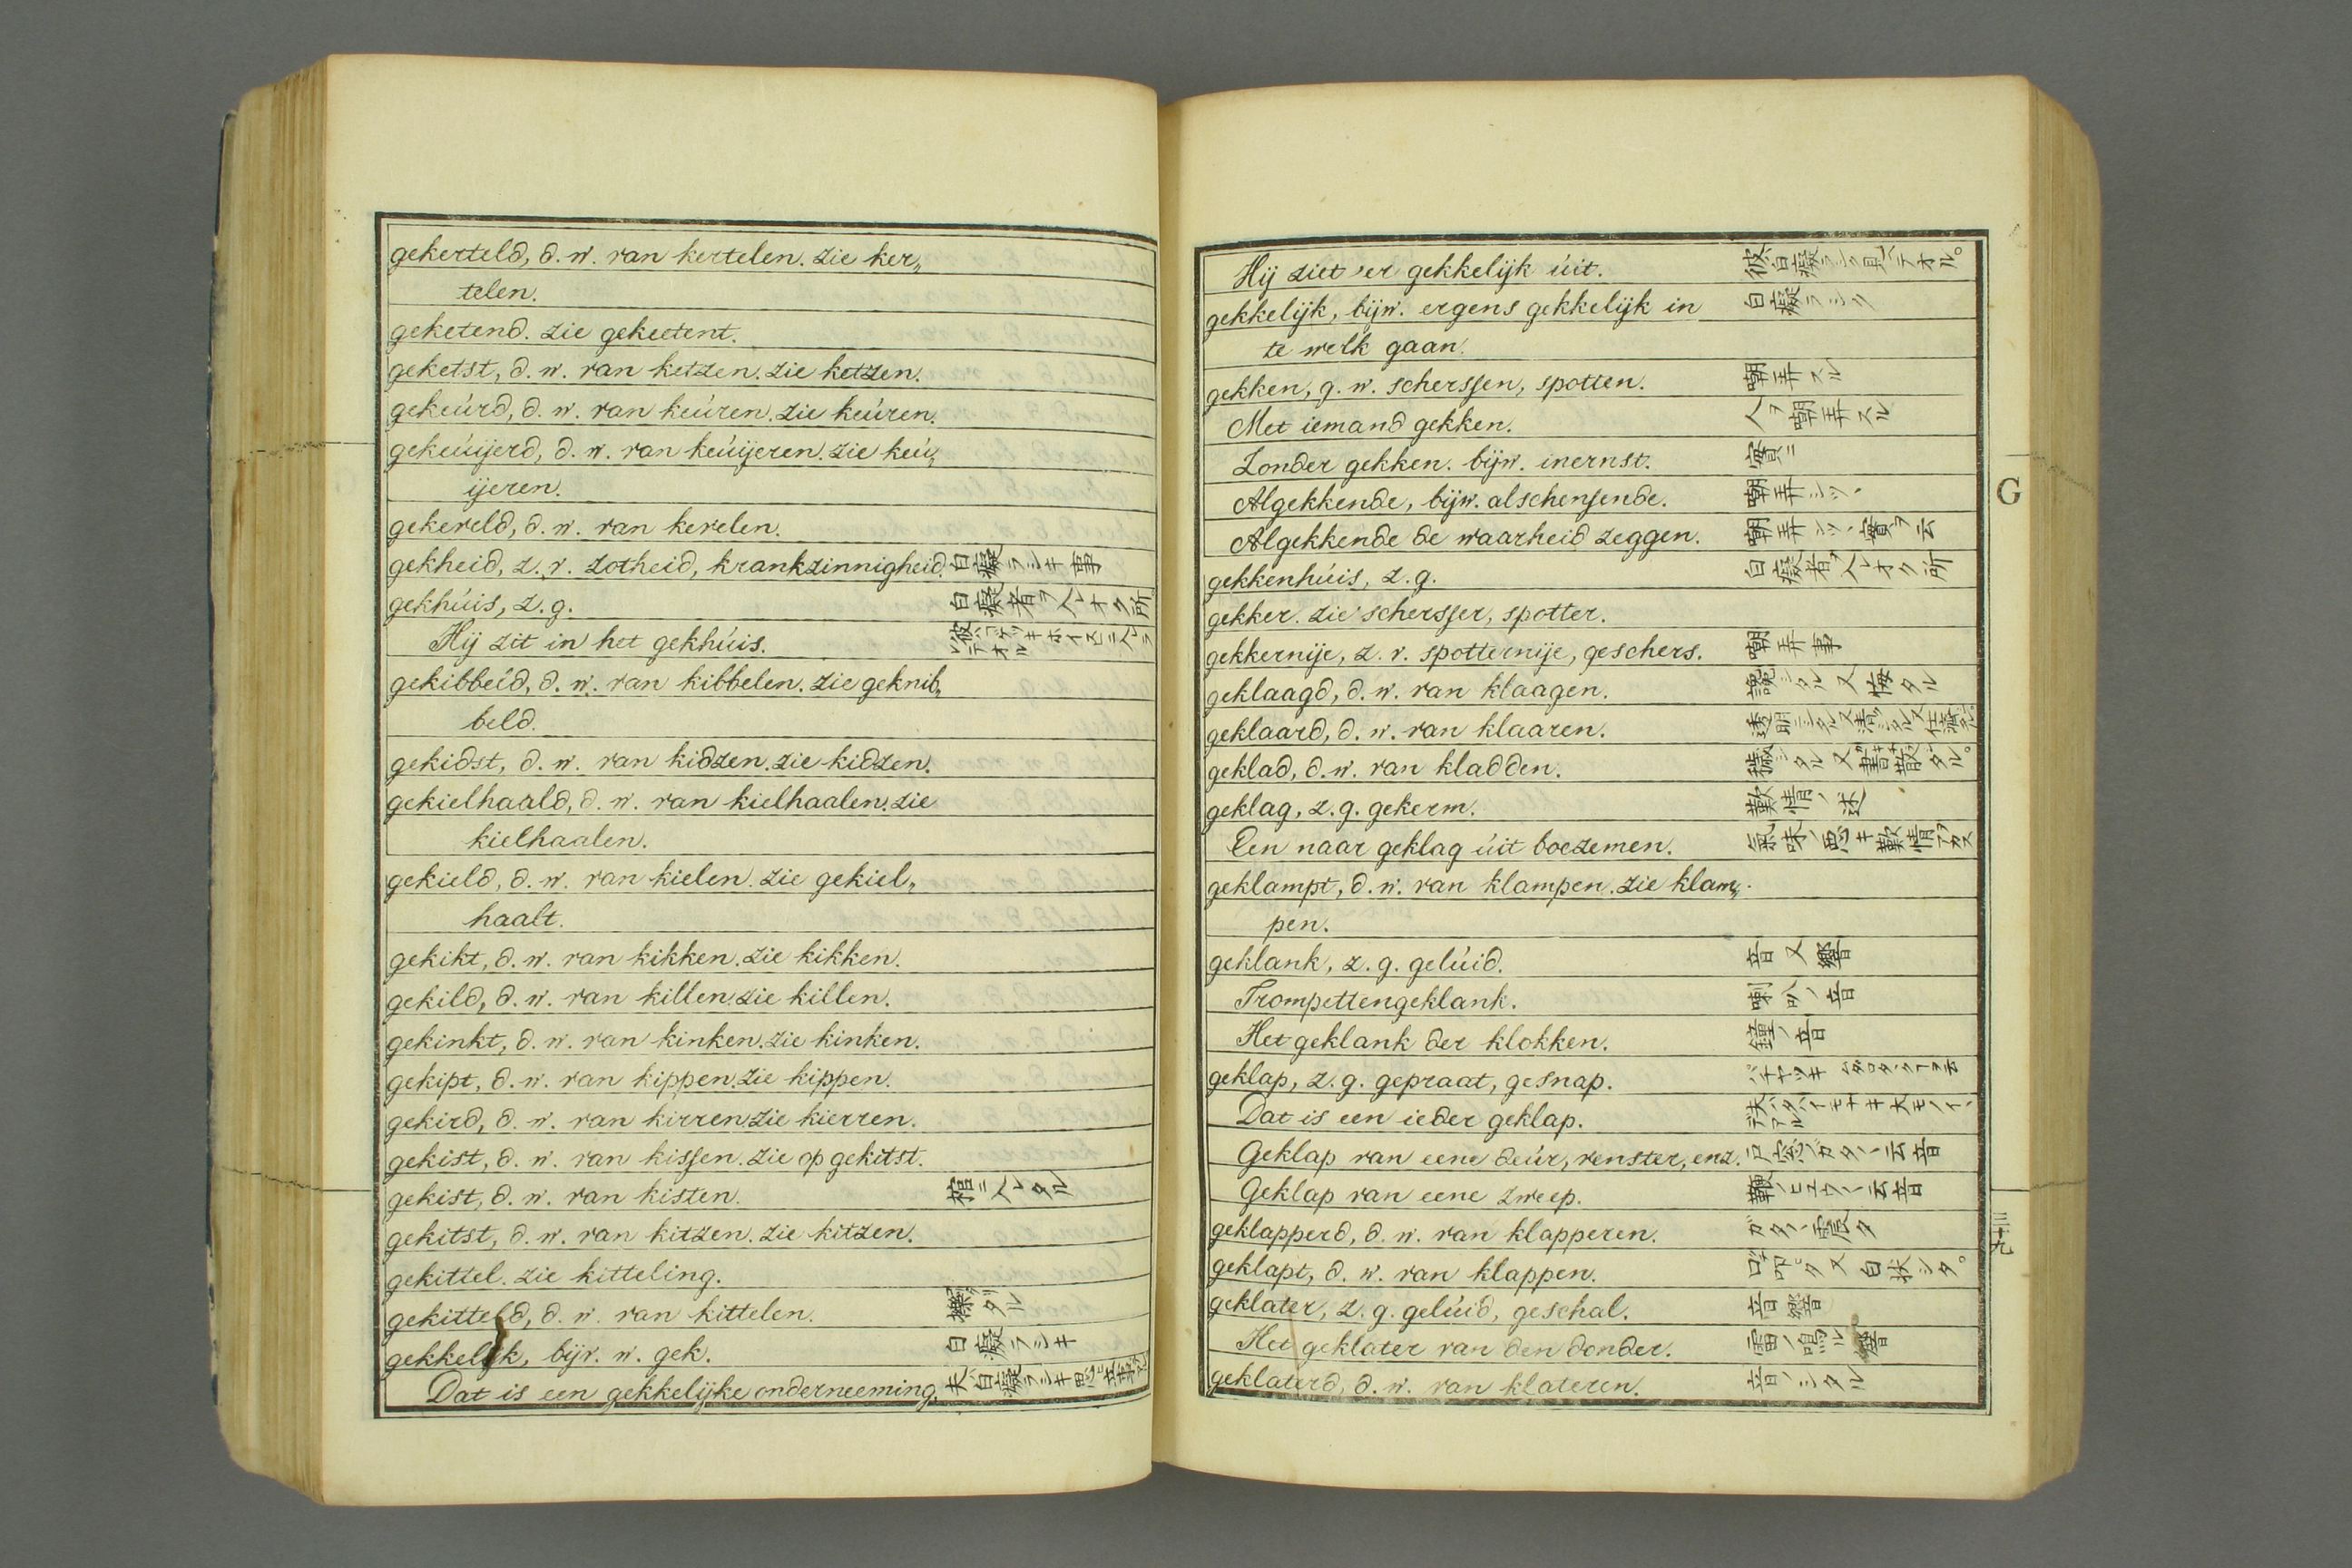 gekerteld, d. w. van kertelen. zie ker„
telen.
geketend. zie gekeetent.
geketst, d. w. van ketzen. zie ketzen.
gekeúrd, d. w. van keúren. zie keúren.
gekeúijerd, d. w. van keúijeren. zie keú„
ijeren.
gekereld, d. w. van kerelen.
gekheid, z. v. zotheid, krankzinnigheid. 白癡ラシキ事
gekhúis, z. g. 白癡者ヲ入レオク所
Hij zit in het gekhúis.
gekibbeíd, d. w. van kibbelen. zie geknib„
beld.
gekidst, d. w. van kidzen. zie kidzen.
gekielhaald, d. w. van kielhaalen. zie
kielhaalen.
gekield, d. w. van kielen. zie gekiel„
haalt.
gekikt, d. w. van kikken. zie kikken.
gekild, d. w. van killen. zie killen.
gekinkt, d. w. van kinken. zie kinken.
gekipt, d. w. van kippen. zie kippen.
gekird, d. w. van kirren. zie kierren.
gekist, d. w. van kissen. zie op gekitst.
gekist, d. w. van kisten. 棺ニ入レタル
gekitst, d. w. van kitzen. zie kitzen.
gekittel. zie kitteling.
gekitteld, d. w. van kittelen.
gekkelijk, bijv. w. gek. 白癡ラシキ
Dat is een gekkelijke onderneeming.
Hij ziet 'er gekkelijk úit. 彼ハ白癡ラシク見ヘテオル。
gekkelijk, bijw. ergens gekkelijk in 白癡ラシク
te werk gaan.
gekken, g. w. scherssen, spotten. 嘲弄スル
Met iemand gekken. 人ヲ嘲弄スル
Zonder gekken. bijw. inernst. 實ニ
Algekkende, bijw. alschensende. 嘲弄シツヽ
Algekkende de waarheid zeggen. 嘲弄シツヽ實ヲ云
gekkenhúis, z. g. 白癡者ヲ入レオク所
gekker. zie schersser, spotter.
gekkernije, z. v. spotternije, geschers. 嘲弄事
geklaagd, d. w. van klaagen. 讒シタル又悔タル
geklaard, d. w. van klaaren.
geklad, d. w. van kladden. 穢シタル又書散シタル。
geklag, z. g. gekerm. 歎情ノ述
Een naar geklag úit boezemen. 氣味ノ悪キ歎情ヲアカス
geklampt, d. w. van klampen. zie klam„
pen.
geklank, z. g. gelúid. 音又響
Trompettengeklank. 喇叭ノ音
Het geklank der klokken. 鐘ノ音
geklap, z. g. gepraat, gesnap.
Dat is een ieder geklap.
Geklap van eene deúr, venster, enz. 戸窓ノガタヽ云音
Geklap van eene zweep. 鞭ノヒユウヽ云音
geklapperd, d. w. van klapperen. ガタヽ震タ
geklapt, d. w. van klappen. 又白状シタ。
geklater, z. g. gelúid, geschal. 音響
Het geklater van den donder. 雷ノ鳴ル響
geklaterd, d. w. van klateren. 音ノシタル
G